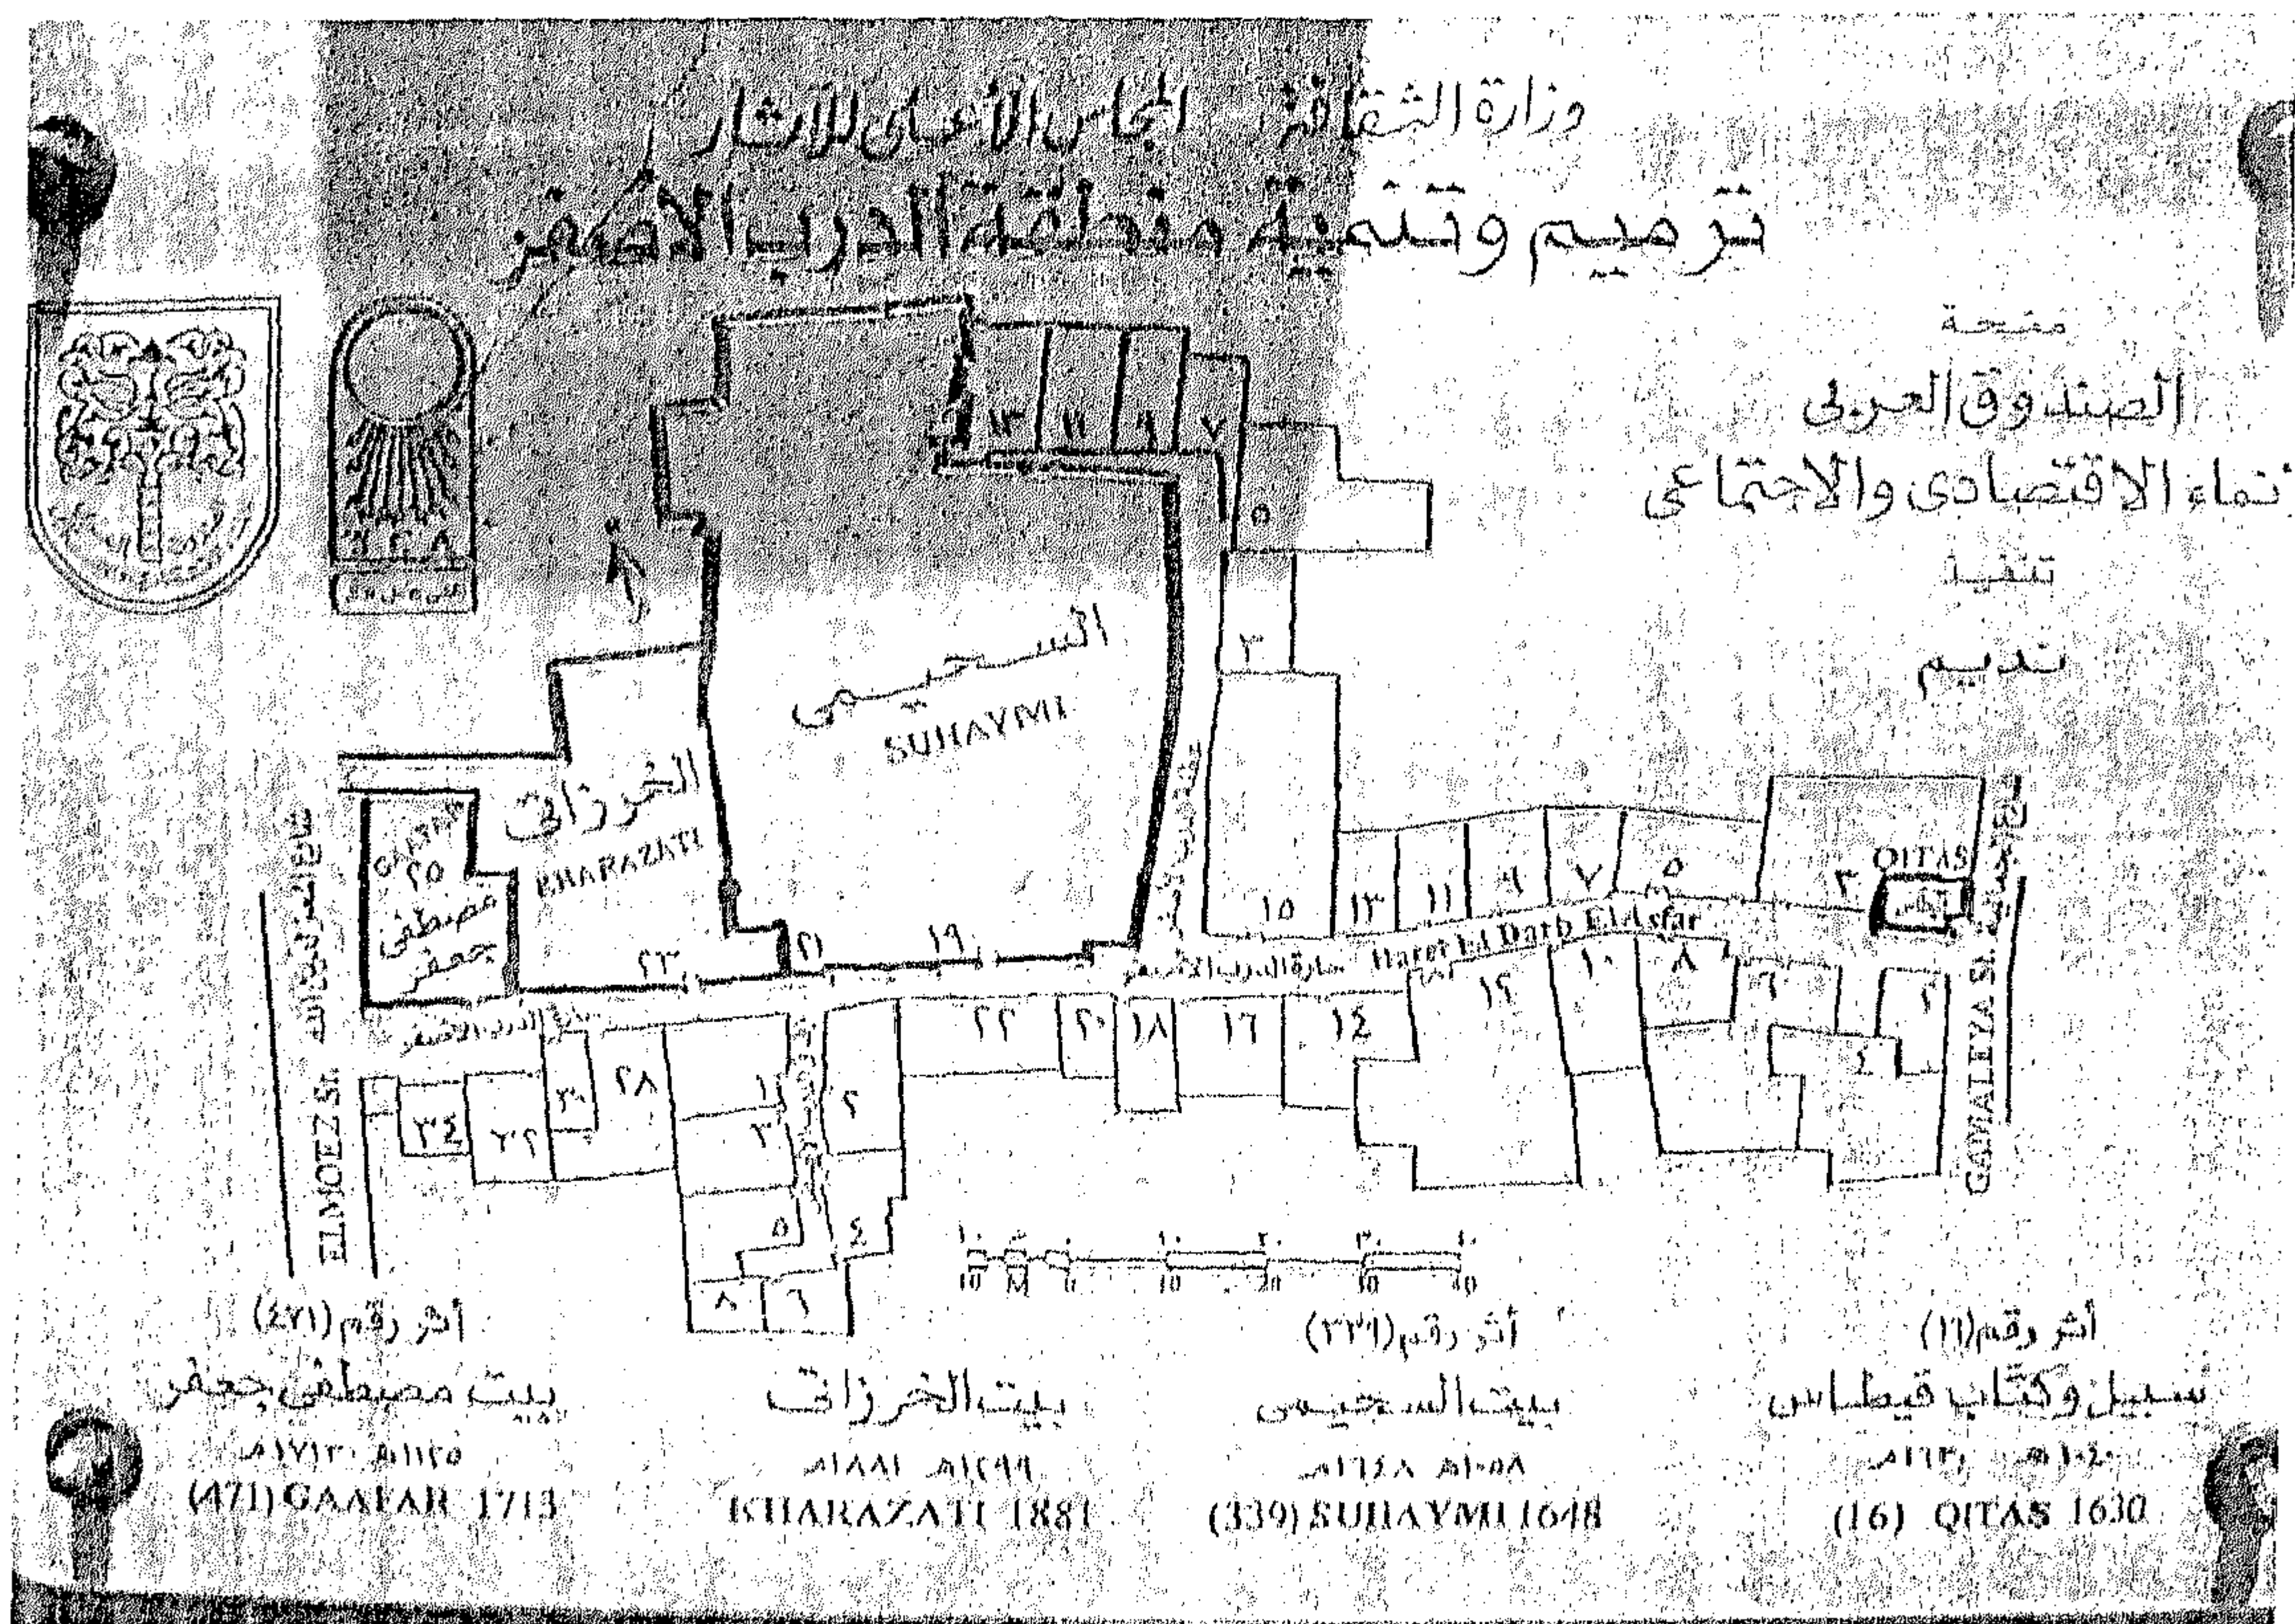 وزارة الثقافة المجلس الأعلى للآثار
ترميم وتنمية منطقة الدرب الأصفر
منحة
الصندوق العربى
نماء الاقتصادى والاجتماعى
تنفيذ
نديم
١٣ ١١ ٩ ٧
٥
٣
السحيمى
SUHAYMI
الخرزاتى
KHARAZATI
GAAFAR
٢٥
مصطفى
جعفر
QITAS
١٥ ١٣ ١١ ٩ ٧ ٥ ٣
٢٣ ٢١ ١٩
حارة الدرب الأصفر Haret El Darb El Asfar
حارة الدرب الأصفر
٣٤ ٣٢ ٣٠ ٢٨ ١ ٢ ٢٢ ٢٠ ١٨ ١٦ ١٤ ١٢ ١٠ ٨ ٦ ٢
٣ ٤
٥ ٤
٨ ٦
ELMOEZ St.
GAMALIYA St.
١٠ ٥ ٠ ١٠ ٢٠ ٣٠ ٤٠
10 M 0 10 20 30 40
أثر رقم (٤٧١)
بيت مصطفى جعفر
١١٢٥هـ ١٧١٣م
(471) GAAFAR 1713
بيت الخرزاتى
١٢٩٩هـ ١٨٨١م
KHARAZATI 1881
أثر رقم (٣٣٩)
بيت السحيمى
١٠٥٨هـ ١٦٤٨م
(339) SUHAYMI 1648
أثر رقم (١٦)
سبيل وكتّاب قيطاس
١٠٤٠هـ ١٦٣٠م
(16) QITAS 1630